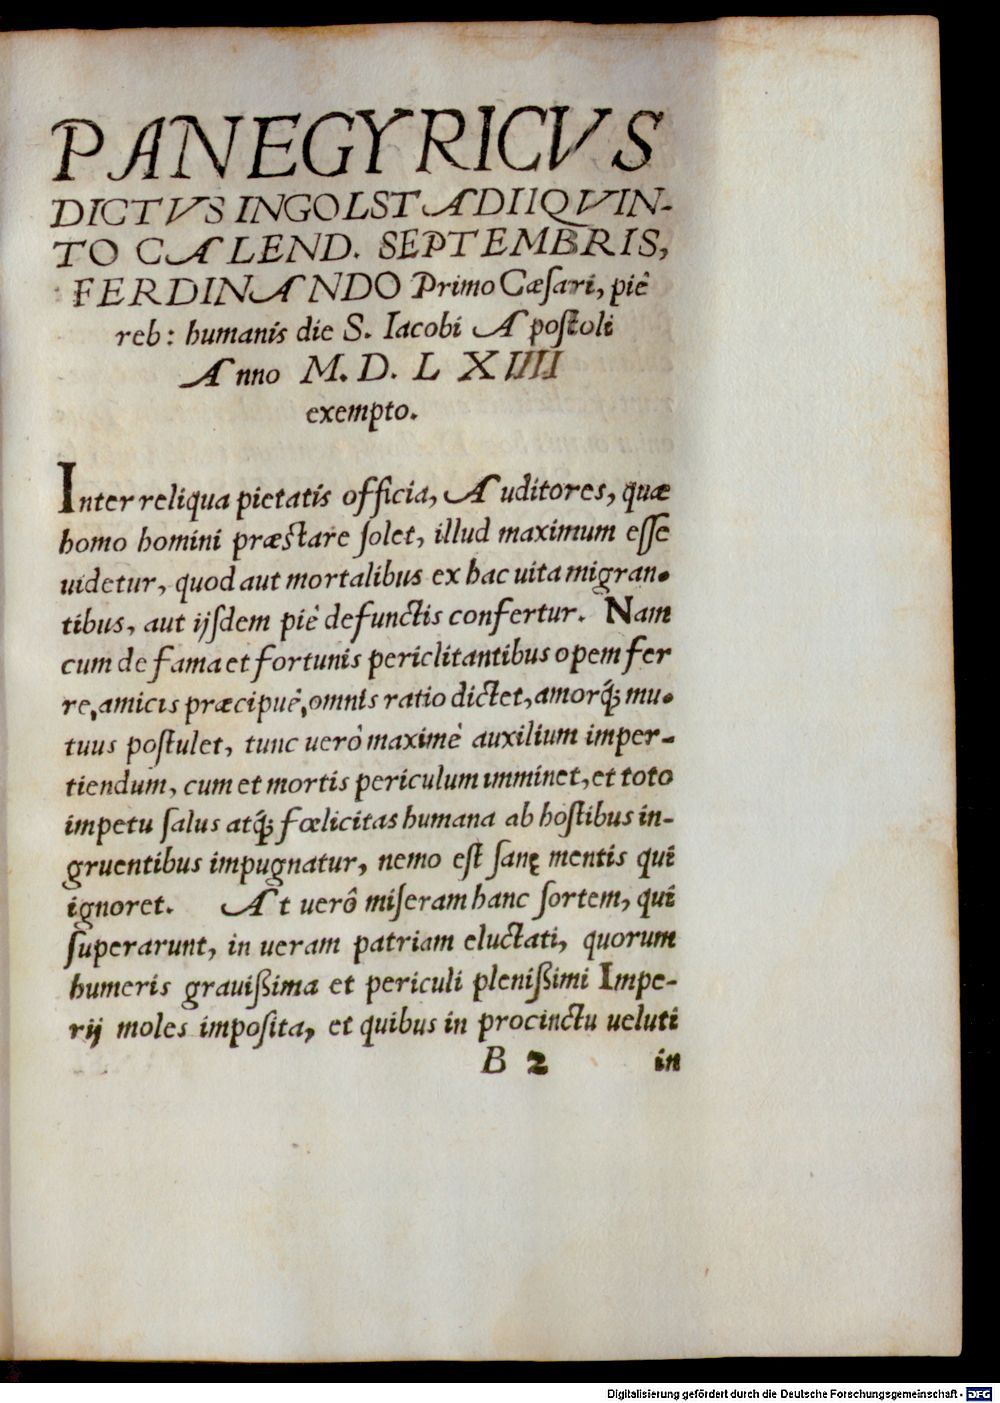 PANEGYRICVS
DICTVS INGOLSTADII QVIN-
TO CALEND. SEPTEMBRIS,
FERDINANDO Primo Cæſari, piè
reb: humanis die S. Iacobi Apoſtoli
Anno M. D. L XIIII
exempto.
Inter reliqua pietatis officia, Auditores, quæ
homo homini præſtare ſolet, illud maximum eſſe
uidetur, quod aut mortalibus ex hac uita migran-
tibus, aut ijſdem piè defunctis confertur. Nam
cum de fama et fortunis periclitantibus opem fer
re, amicis præcipuè, omnis ratio dictet, amorq́; mu-
tuus poſtulet, tunc uerò maximè auxilium imper-
tiendum, cum et mortis periculum imminet, et toto
impetu ſalus atq́; fœlicitas humana ab hoſtibus in-
gruentibus impugnatur, nemo eſt ſanę mentis qui
ignoret. At uerô miſeram hanc ſortem, qui
ſuperarunt, in ueram patriam eluctati, quorum
humeris grauißima et periculi plenißimi Impe-
rij moles impoſita, et quibus in procinctu ueluti
B 2 in
Digitalisierung gefördert durch die Deutsche Forschungsgemeinschaft - DFG